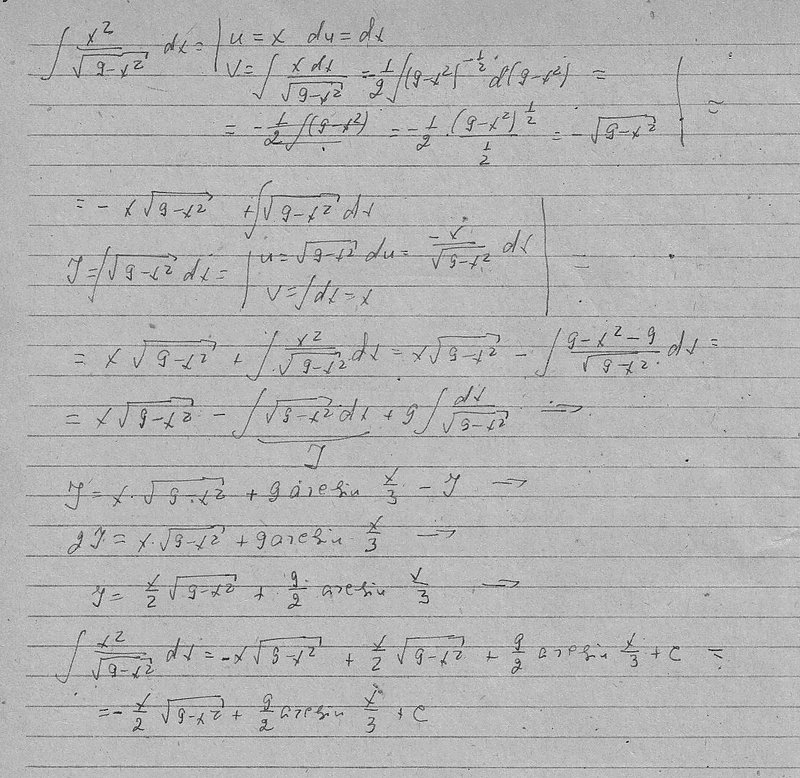 ∫ x²/√(9-x²) dx = | u = x du = dx
v = ∫ x dx/√(9-x²) = -1/2 ∫(9-x²)^(-1/2) d(9-x²) = | =
= -1/2 ∫(9-x²) = -1/2 · (9-x²)^(1/2)/(1/2) = -√(9-x²)
= - x√(9-x²) + ∫√(9-x²) dx
J = ∫√(9-x²) dx = | u = √(9-x²) du = -x/√(9-x²) dx | =
v = ∫dx = x
= x √(9-x²) + ∫ x²/√(9-x²) dx = x√(9-x²) - ∫ (9-x²-9)/√(9-x²) dx =
= x√(9-x²) - ∫√(9-x²) dx + 9∫ dx/√(9-x²) ⇒
J
J = x·√(9-x²) + 9 arcsin x/3 - J ⇒
2J = x·√(9-x²) + 9 arcsin x/3 ⇒
J = x/2 √(9-x²) + 9/2 arcsin x/3 ⇒
∫ x²/√(9-x²) dx = -x√(9-x²) + x/2 √(9-x²) + 9/2 arcsin x/3 + C =
= - x/2 √(9-x²) + 9/2 arcsin x/3 + C